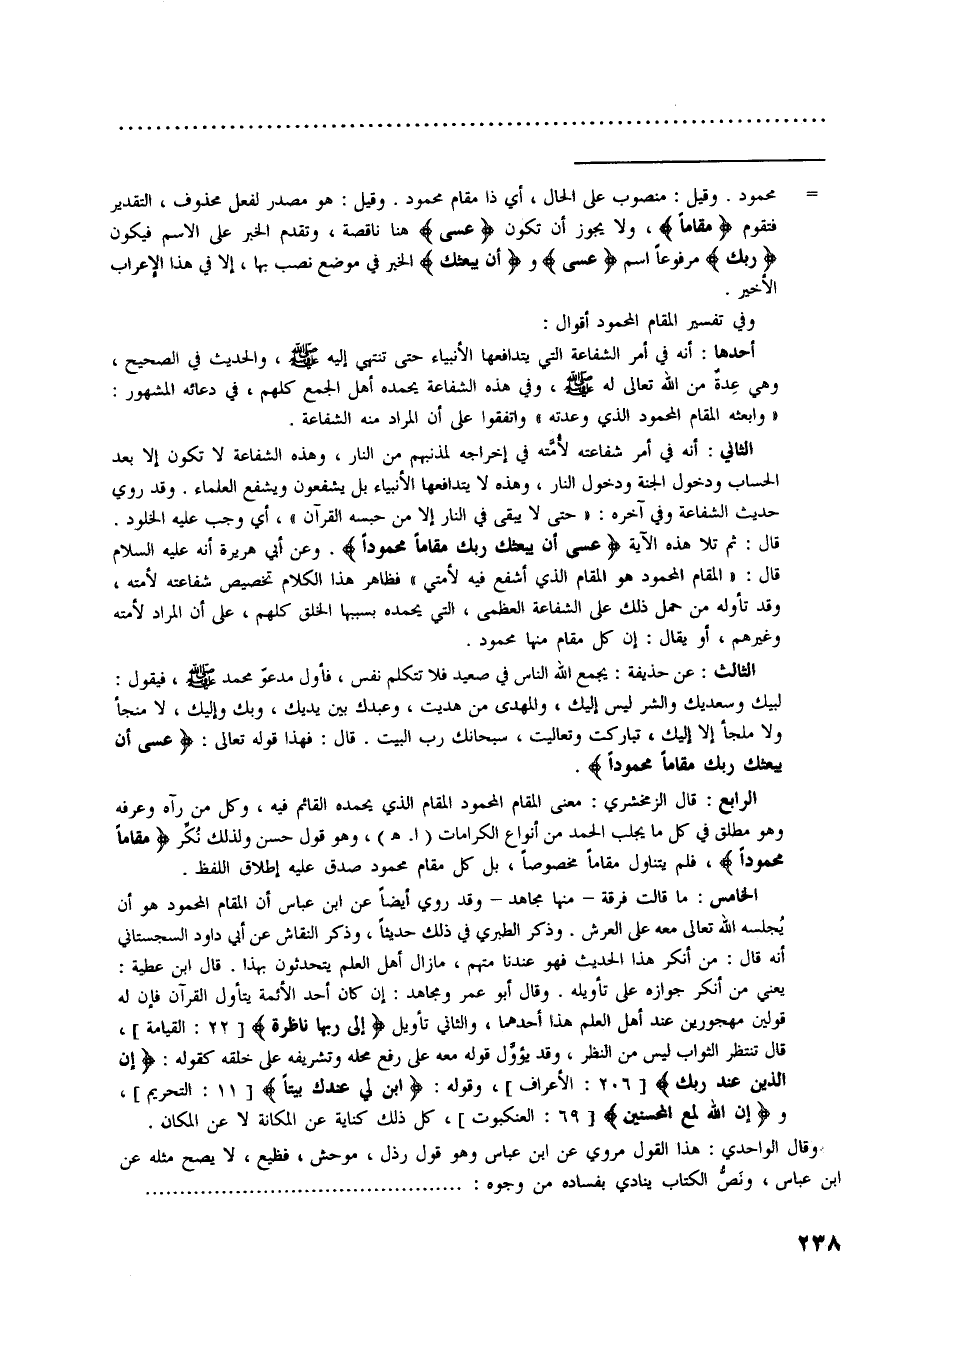 ..........................................................................
= محمود . وقيل : منصوب على الحال ، أي ذا مقام محمود . وقيل : هو مصدر لفعل محذوف ، التقدير
فتقوم ﴿ مقاماً ﴾ ، ولا يجوز أن تكون ﴿ عسى ﴾ هنا ناقصة ، وتقدم الخبر على الاسم فيكون
﴿ ربك ﴾ مرفوعاً اسم ﴿ عسى ﴾ و ﴿ أن يبعثك ﴾ الخبر في موضع نصب بها ، إلا في هذا الإعراب
الأخير .
وفي تفسير المقام المحمود أقوال :
أحدها : أنه في أمر الشفاعة التي يتدافعها الأنبياء حتى تنتهي إليه ﷺ ، والحديث في الصحيح ،
وهي عِدةٌ من الله تعالى له ﷺ ، وفي هذه الشفاعة يحمده أهل الجمع كلهم ، في دعائه المشهور :
« وابعثه المقام المحمود الذي وعدته » واتفقوا على أن المراد منه الشفاعة .
الثاني : أنه في أمر شفاعته لأُمَّته في إخراجه لمذنبهم من النار ، وهذه الشفاعة لا تكون إلا بعد
الحساب ودخول الجنة ودخول النار ، وهذه لا يتدافعها الأنبياء بل يشفعون ويشفع العلماء . وقد روي
حديث الشفاعة وفي آخره : « حتى لا يبقى في النار إلا من حبسه القرآن » ، أي وجب عليه الخلود .
قال : ثم تلا هذه الآية ﴿ عسى أن يبعثك ربك مقاماً محموداً ﴾ . وعن أبي هريرة أنه عليه السلام
قال : « المقام المحمود هو المقام الذي أشفع فيه لأمتي » فظاهر هذا الكلام تخصيص شفاعته لأمته ،
وقد تأوله من حمل ذلك على الشفاعة العظمى ، التي يحمده بسببها الخلق كلهم ، على أن المراد لأمته
وغيرهم ، أو يقال : إن كل مقام منها محمود .
الثالث : عن حذيفة : يجمع الله الناس في صعيد فلا تتكلم نفس ، فأول مدعوّ محمد ﷺ ، فيقول :
لبيك وسعديك والشر ليس إليك ، والمهدى من هديت ، وعبدك بين يديك ، وبك وإليك ، لا منجأ
ولا ملجأ إلا إليك ، تباركت وتعاليت ، سبحانك رب البيت . قال : فهذا قوله تعالى : ﴿ عسى أن
يبعثك ربك مقاماً محموداً ﴾ .
الرابع : قال الزمخشري : معنى المقام المحمود المقام الذي يحمده القائم فيه ، وكل من رآه وعرفه
وهو مطلق في كل ما يجلب الحمد من أنواع الكرامات ( ا. هـ ) ، وهو قول حسن ولذلك نُكِّر ﴿ مقاماً
محموداً ﴾ ، فلم يتناول مقاماً مخصوصاً ، بل كل مقام محمود صدق عليه إطلاق اللفظ .
الخامس : ما قالت فرقة – منها مجاهد – وقد روي أيضاً عن ابن عباس أن المقام المحمود هو أن
يُجلسه الله تعالى معه على العرش . وذكر الطبري في ذلك حديثاً ، وذكر النقاش عن أبي داود السجستاني
أنه قال : من أنكر هذا الحديث فهو عندنا متهم ، مازال أهل العلم يتحدثون بهذا . قال ابن عطية :
يعني من أنكر جوازه على تأويله . وقال أبو عمر ومجاهد : إن كان أحد الأئمة يتأول القرآن فإن له
قولين مهجورين عند أهل العلم هذا أحدهما ، والثاني تأويل ﴿ إلى ربها ناظرة ﴾ [ ٢٢ : القيامة ] ،
قال تنتظر الثواب ليس من النظر ، وقد يؤوَّل قوله معه على رفع محله وتشريفه على خلقه كقوله : ﴿ إن
الذين عند ربك ﴾ [ ٢٠٦ : الأعراف ] ، وقوله : ﴿ ابن لي عندك بيتاً ﴾ [ ١١ : التحريم ] ،
و ﴿ إن الله لمع المحسنين ﴾ [ ٦٩ : العنكبوت ] ، كل ذلك كناية عن المكانة لا عن المكان .
وقال الواحدي : هذا القول مروي عن ابن عباس وهو قول رذل ، موحش ، فظيع ، لا يصح مثله عن
ابن عباس ، ونَصُّ الكتاب ينادي بفساده من وجوه : ..........................................
٢٣٨